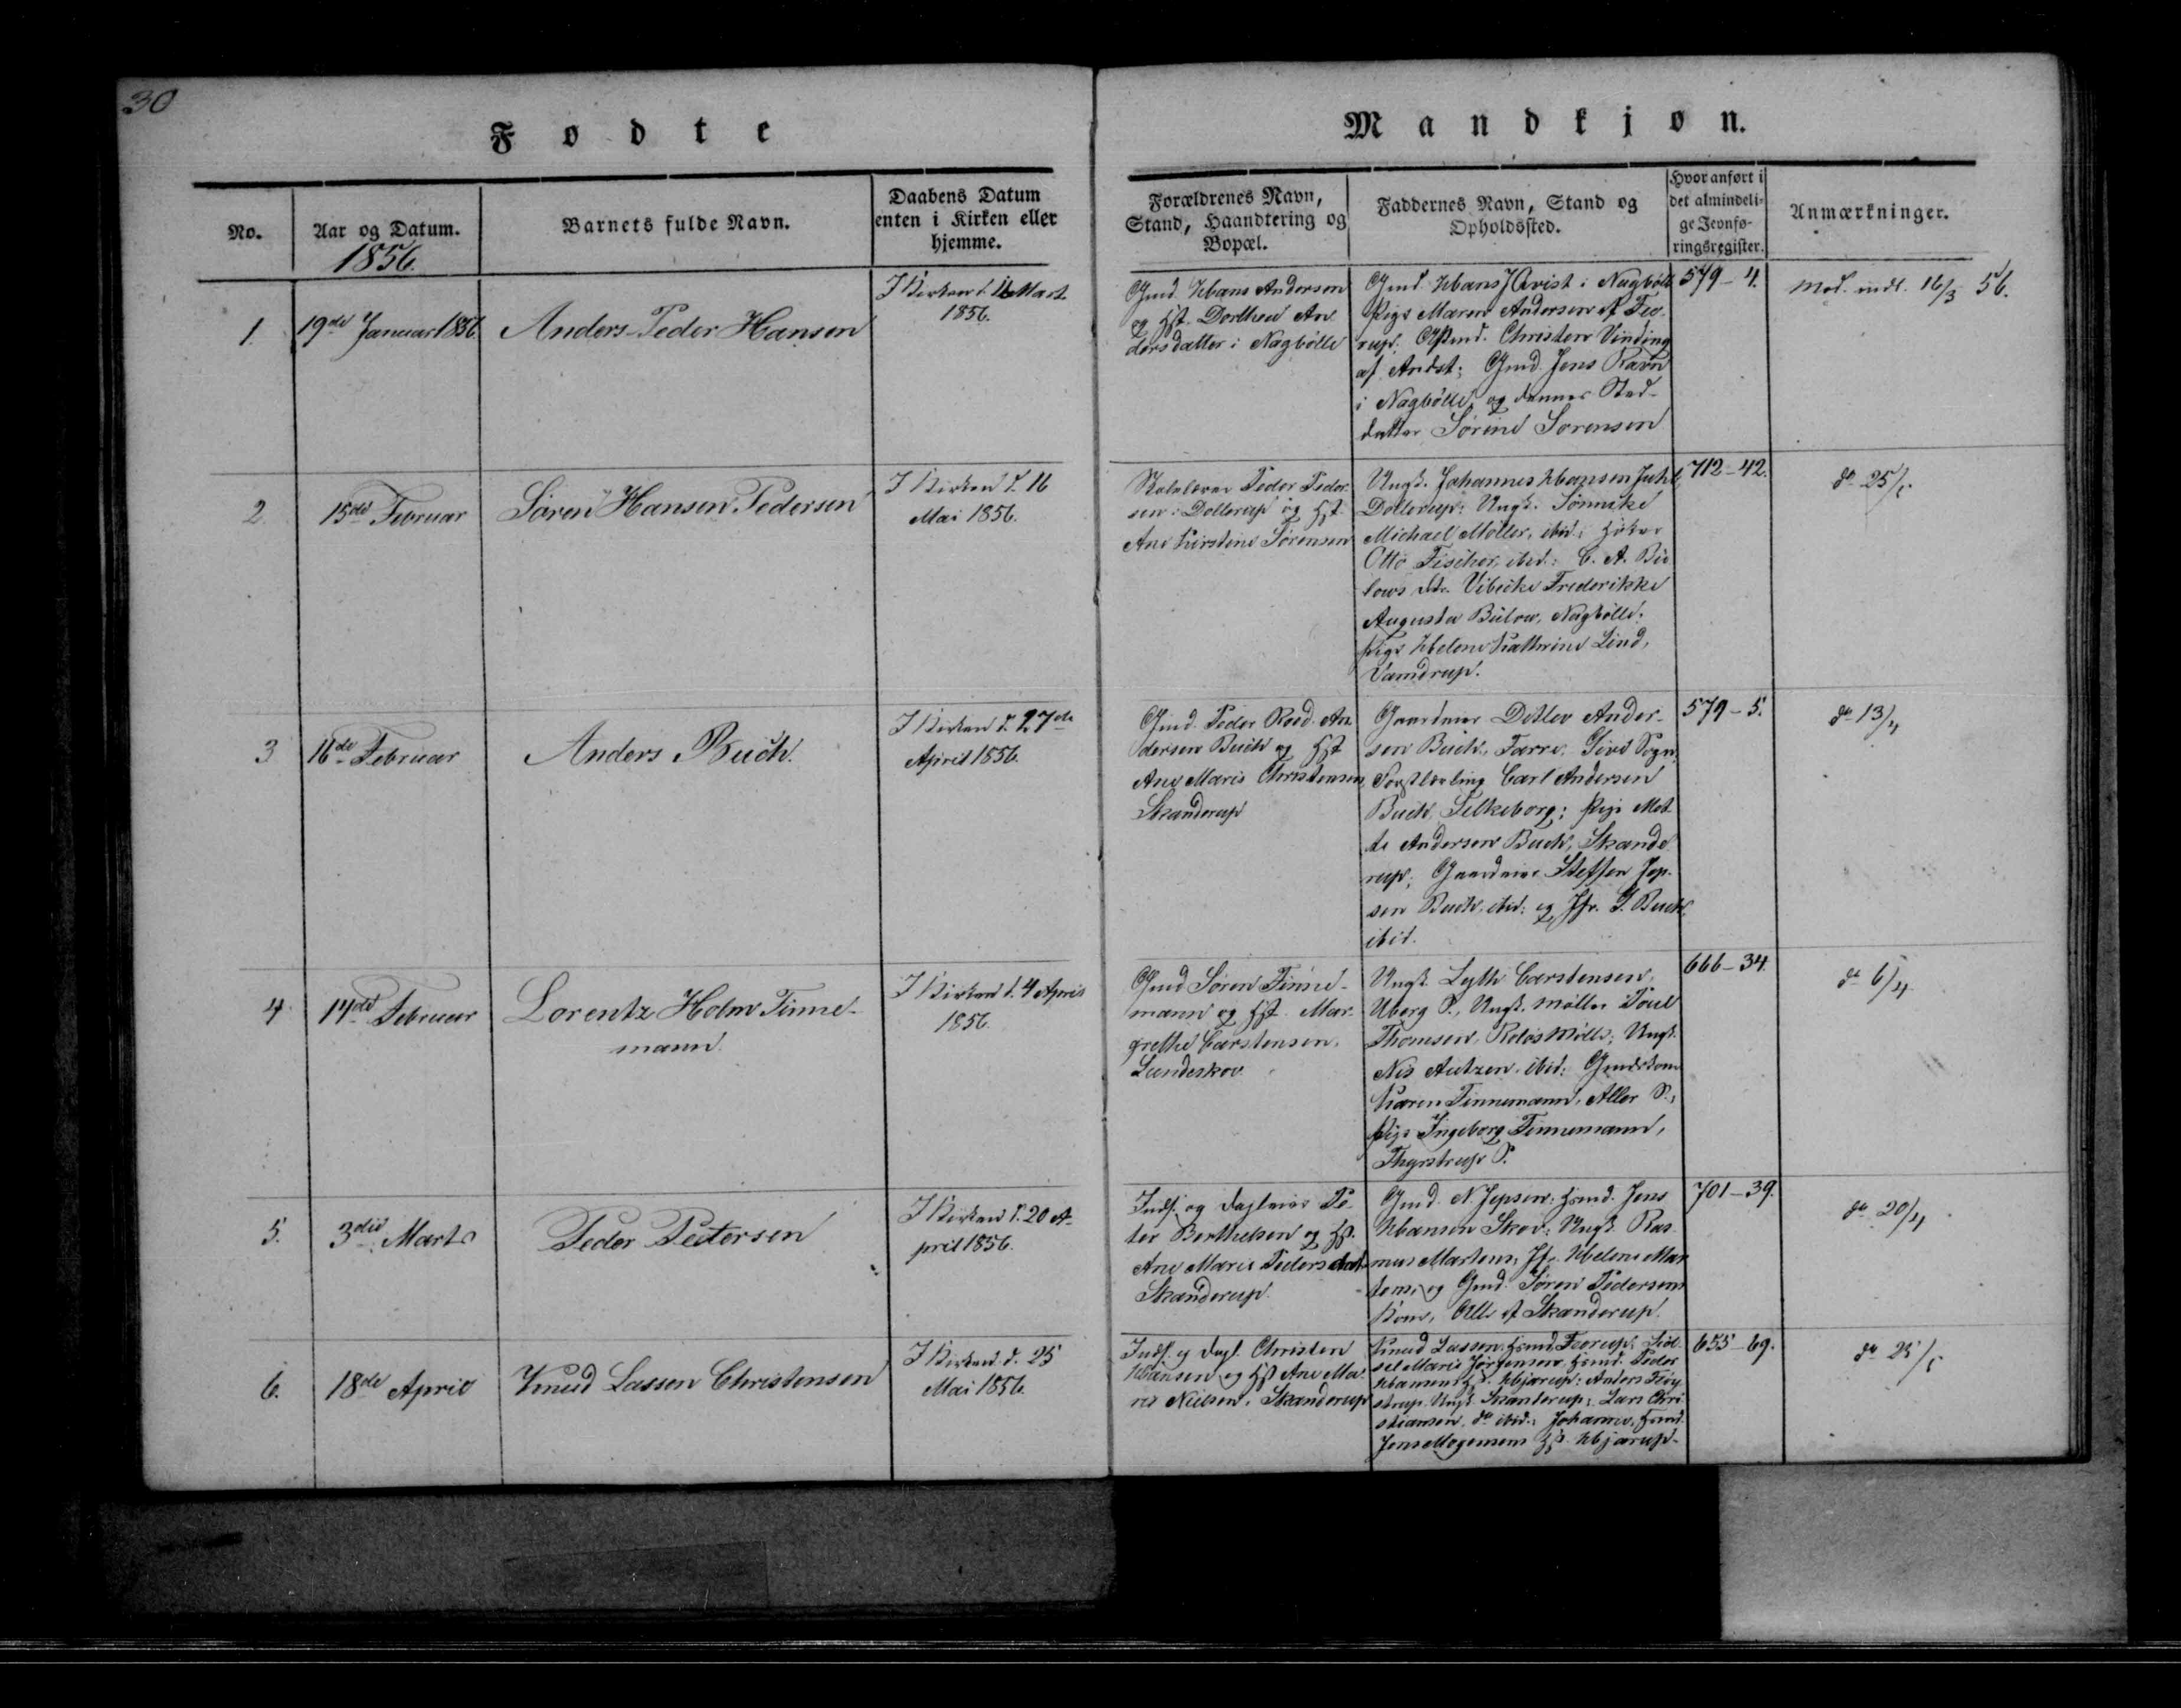 30
Fødte
Mandkjøn.
No.
Aar og Datum.
1856.
Barnets fulde Navn.
Daabens Datum
enten i Kirken eller
hjemme.
Forældrenes Navn,
Stand, Haandtering og
Bopæl.
Faddernes Navn, Stand og
Opholdssted.
Hvor anført i
det almindeli-
ge Jevnfø-
ringsregister.
Anmærkninger.
1.
19de Januar 1856.
Anders Peder Hansen
I Kirken d. 16 Mart.
1856.
Gmd. Hans Andersen
og Hst. Dorthea An-
dersdatter i Nagbølle
Gmd. Hans J Qvist i Nagbølle
Pige Maren Andersen af Fee-
rup; Christen Vinding
af Andst; Gmd. Jens Ravn
i Nagbølle, og dennes Sted-
datter Sørine Sørensen
579 – 4.
Mod. indt. 16/3 56.
2
15de Februar
Søren Hansen Pedersen
I Kirken d. 16
Mai 1856.
Skolelærer Peder Peder-
sen i Dollerup og Hst.
Ane Kirstine Sørensen
Ungk. Johannes Hansen Juhl,
Dollerup; Ungk. Sønnike
Michael Møller, ibid.; Høker
Otto Fischer, ibid.; C. A. Bü-
lows Dtr. Vibecke Frederikke
Augusta Bülow, Nagbølle;
Pige Helene Kathrine Lind,
Vamdrup.
712 – 42.
do 25/5
3
16de Februar
Anders Buch.
I Kirken d. 27de
April 1856.
Gmd. Peder Roed An-
dersen Buch og Hst
Ane Marie Christensen,
Skanderup
Gaardeier Detlev Ander-
sen Buch, Farre, Give Sogn;
Forstlærling Carl Andersen
Buch, Silkeborg; Pige Met-
te Andersen Buch, Skande-
rup; Gaardeier Steffen Jep-
sen Buch, ibid; og Jfr. Buch,
ibid.
579 – 5.
do 13/4
4
14de Februar
Lorentz Holm Tinne-
mann.
I Kirken d. 4 April
1856
Gmd Søren Tinne-
mann og Hst. Mar-
grethe Carstensen,
Lundeskov.
Ungk. Lyth Carstensen,
Uberg S., Ungk. Møller Poul
Thomsen, Roløs Mølle; Ungk.
Nis Autzen, ibid; Gmdskone
Karen Tinnemann, Aller S.;
Pige Ingeborg Tinnemann,
Thyrstrup S.
666 – 34.
do 6/4
5.
3die Marts
Peder Petersen
I Kirken d. 20 A-
pril 1856.
Inds. og Dagleier Pe-
ter Berthelsen og Hst.
Ane Marie Pedersdat-
Skanderup.
Gmd. N. Jepsen; Hsmd. Jens
Hansen Skov; Ungk. Ras-
mus Martens; Jfr. Helene Mar-
tens; og Gmd. Søren Pedersens
Kone, Alle af Skanderup.
701 – 39.
do 20/4
6.
18de April
Knud Lassen Christensen
I Kirken d. 25
Mai 1856.
Inds. og Dagl. Christen
Hansen og Hst Ane Ma-
rie Nielsen, Skanderup
Knud Lassen, Hsmd, Feerup; Sid-
sel Marie Jörgensen, Hsmd. Peder
Hansens Hst. Hjarup; Anders Fröy-
strup, Ungk. Skanderup; Lars Chri-
stiansen, do ibid.; Johanne, Hsmd.
Jens Mogensens Hst. Hjarup.
655 – 69.
do 25/5